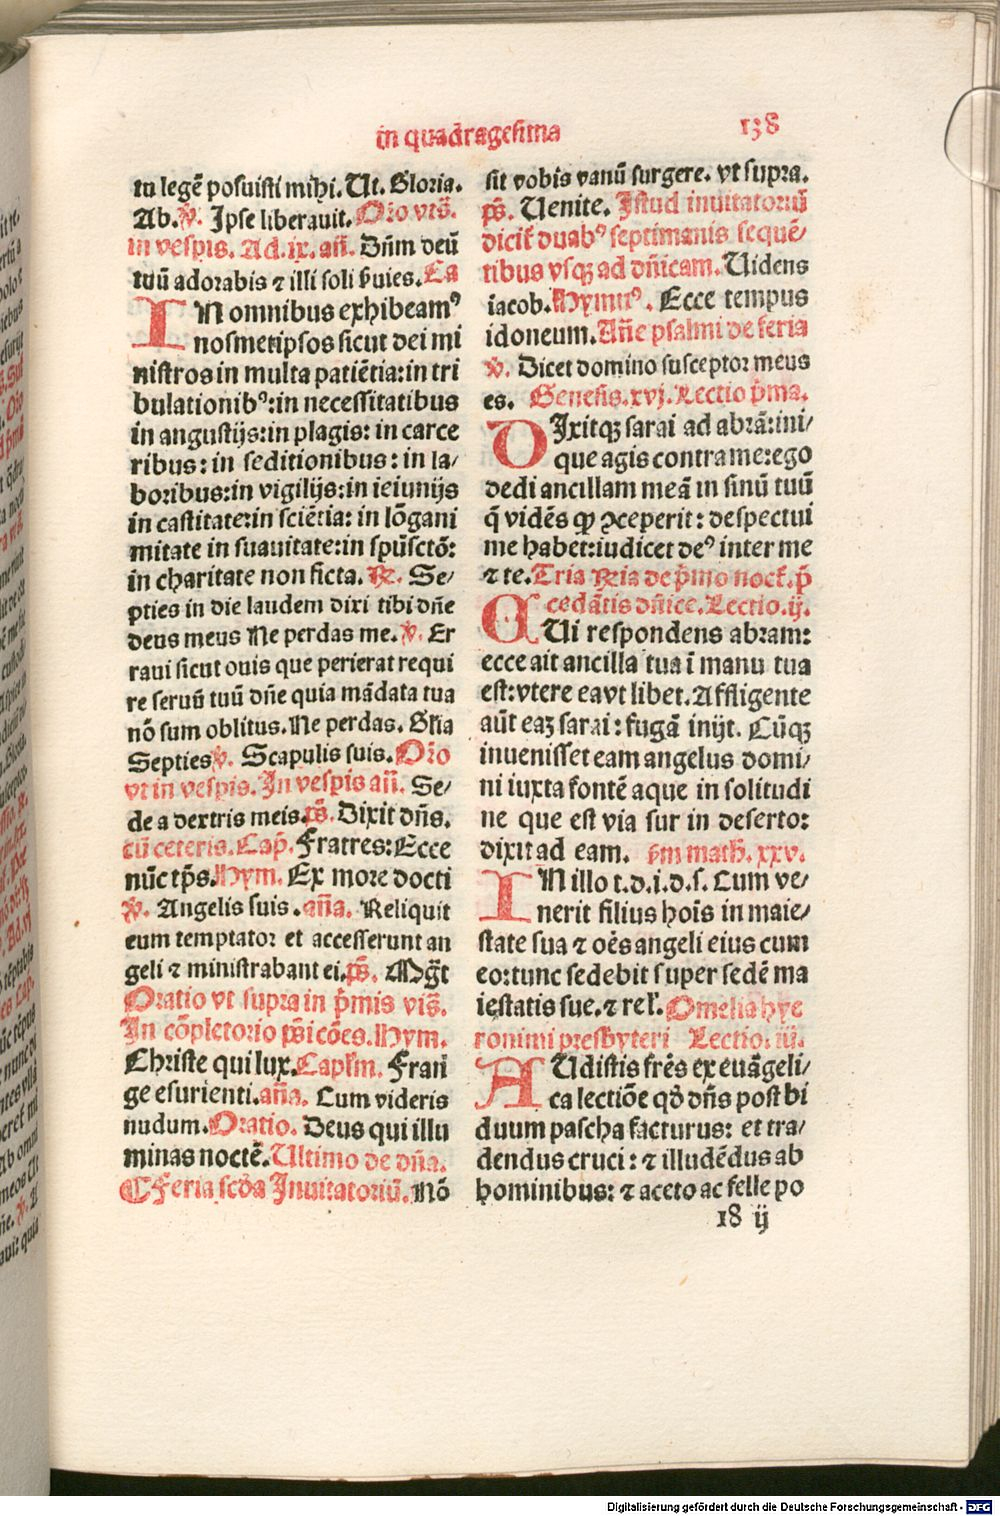 in quadragesima
138
tu legē posuisti mihi. Ut. Gloria.
Ab. ℣. Ipse liberauit. Oro vts̄.
in vespis. Ad. ix. an̄. Dn̄m deū
tuū adorabis ⁊ illi soli ẜuies. Ca
IN omnibus exhibeamꝰ
nosmetipsos sicut dei mi
nistros in multa patiētia: in tri
bulationibꝰ: in necessitatibus
in angustijs: in plagis: in carce
ribus: in seditionibus: in la/
boribus: in vigilijs: in ieiunijs
in castitate: in sciētia: in lōgani
mitate in suauitate: in spūsctō:
in charitate non ficta. ℟. Se/
pties in die laudem dixi tibi dn̄e
deus meus Ne perdas me. ℣. Er
raui sicut ouis que perierat requi
re seruū tuū dn̄e quia mādata tua
nō sum oblitus. Ne perdas. Gl̄ia
Septies ℣. Scapulis suis. Oro
vt in vespis. In vespis an̄. Se/
de a dextris meis. ps̄. Dixit dn̄s.
cū ceteris. Cap̄. Fratres: Ecce
nūc tp̄s. Hym. Ex more docti
℣. Angelis suis. an̄a. Reliquit
eum temptator et accesserunt an
geli ⁊ ministrabant ei. ps̄. Mḡt
Oratio vt supra in p̄mis vis̄.
In cōpletorio ps̄i cōes. Hym.
Christe qui lux. Caplm̄. Frāti
ge esurienti. an̄a. Cum videris
nudum. Oratio. Deus qui illu
minas noctē. Ultimo de dn̄a.
¶ Feria scd̄a Inuitatoriū. Nō
sit vobis vanū surgere. vt supra.
ps̄. Uenite. Istud inuitatoriū
dicit̄ duabꝰ septimanis sequē/
tibus vsqꝫ ad dn̄icam. Uidens
iacob. Hymnꝰ. Ecce tempus
idoneum. An̄e psalmi de feria
℣. Dicet domino susceptor meus
es. Genesis. xvj. Lectio p̄ma.
DIxitqꝫ sarai ad abrā: ini/
que agis contra me: ego
dedi ancillam meā in sinū tuū
q̄ vidēs ꝙ ꝯceperit: despectui
me habet: iudicet deꝰ inter me
⁊ te. Tria R̄ia de p̄mo noct̄. p̄
cedātis dn̄ice. Lectio. ij.
CUi respondens abram:
ecce ait ancilla tua ī manu tua
est: vtere ea vt libet. Affligente
aūt eaꝫ sarai: fugā inijt. Cūqꝫ
inuenisset eam angelus domi/
ni iuxta fontē aque in solitudi
ne que est via sur in deserto:
dixit ad eam. s̄m math̄. xxv.
IN illo t. d. i. d. s. Cum ve/
nerit filius hoīs in maie/
state sua ⁊ oēs angeli eius cum
eo: tunc sedebit super sedē ma
iestatis sue. ⁊ rel̄. Omelia hye
ronimi presbyteri Lectio. iij.
AUdistis fr̄es ex euāgeli/
ca lectiōe qd̄ dn̄s post bi
duum pascha facturus: et tra/
dendus cruci: ⁊ illudēdus ab
hominibus: ⁊ aceto ac felle po
18 ij
Digitalisierung gefördert durch die Deutsche Forschungsgemeinschaft - DFG